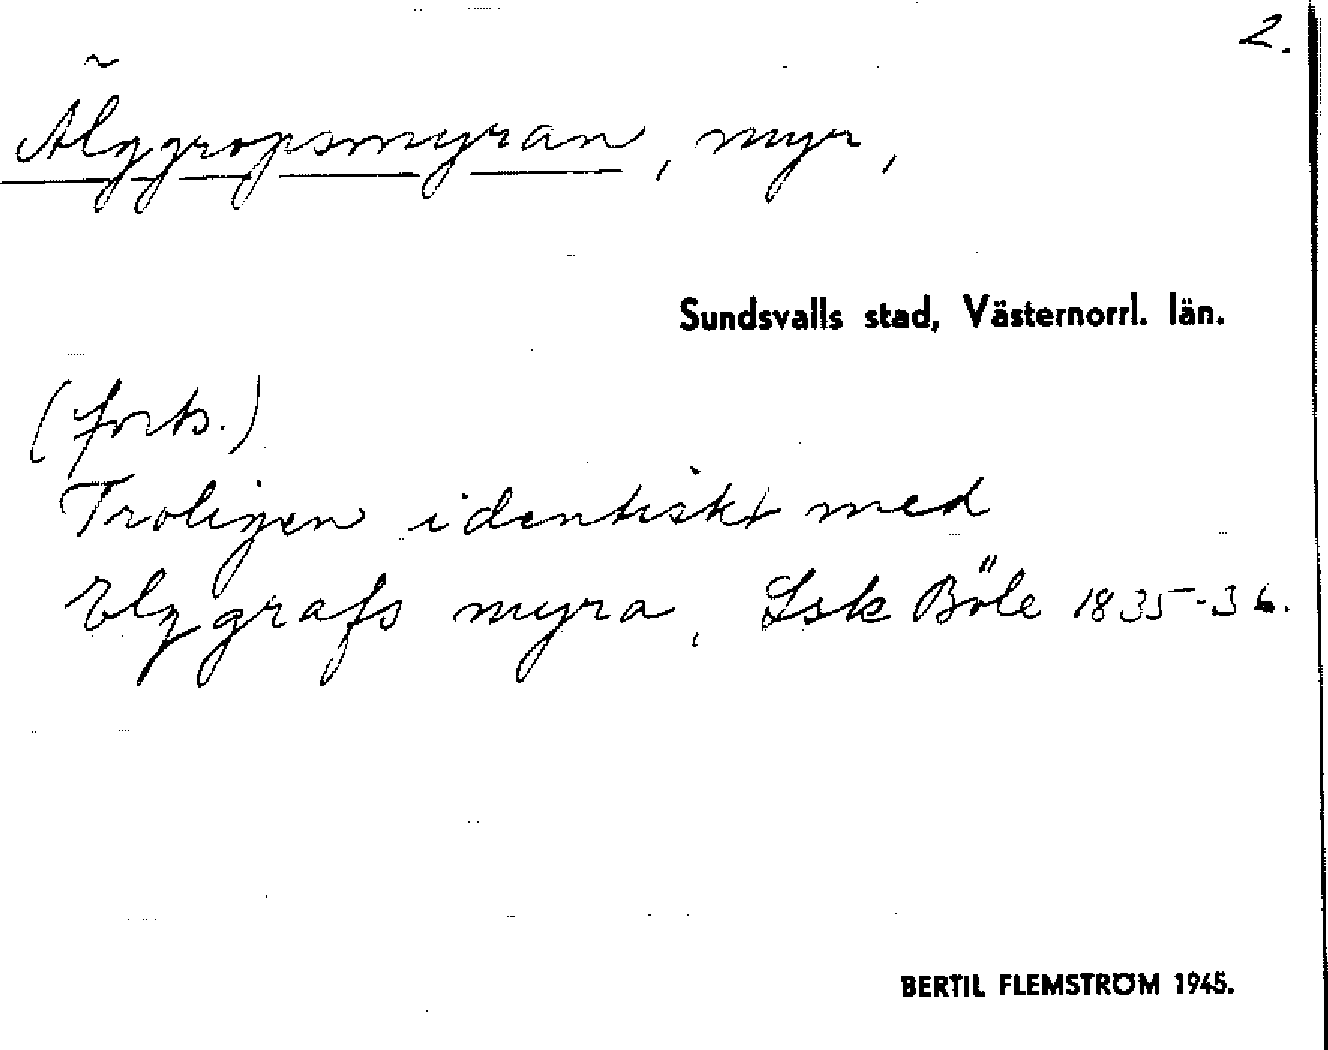 2.
Älggropsmyran, myr,
Sundsvalls stad, Västernorrl. län.
(forts.)
Troligen identiskt med
Elggrafs myra, Lsk Böle 1835-36.
BERTIL FLEMSTRÖM 1945.